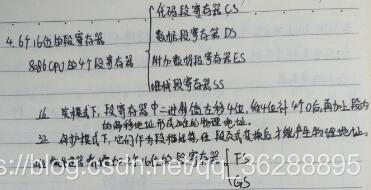 代码段寄存器CS
4. 6个16位的段寄存器
数据段寄存器DS
8086CPU的4个段寄存器
附加数据段寄存器ES
堆栈段寄存器SS
16 实模式下,段寄存器中二进制值左移4位,给4位补4个0后,再加上段内
的偏移地址形成20位的物理地址。
32 保护模式下,它们作为段选择符,经段式变换后才能产生物理地址。
16位的段寄存器
FS
GS
https://blog.csdn.net/qq_36288895